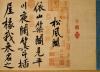 松風閣
依山築閣見平
川夜闌箕斗插
屋椽我來名之